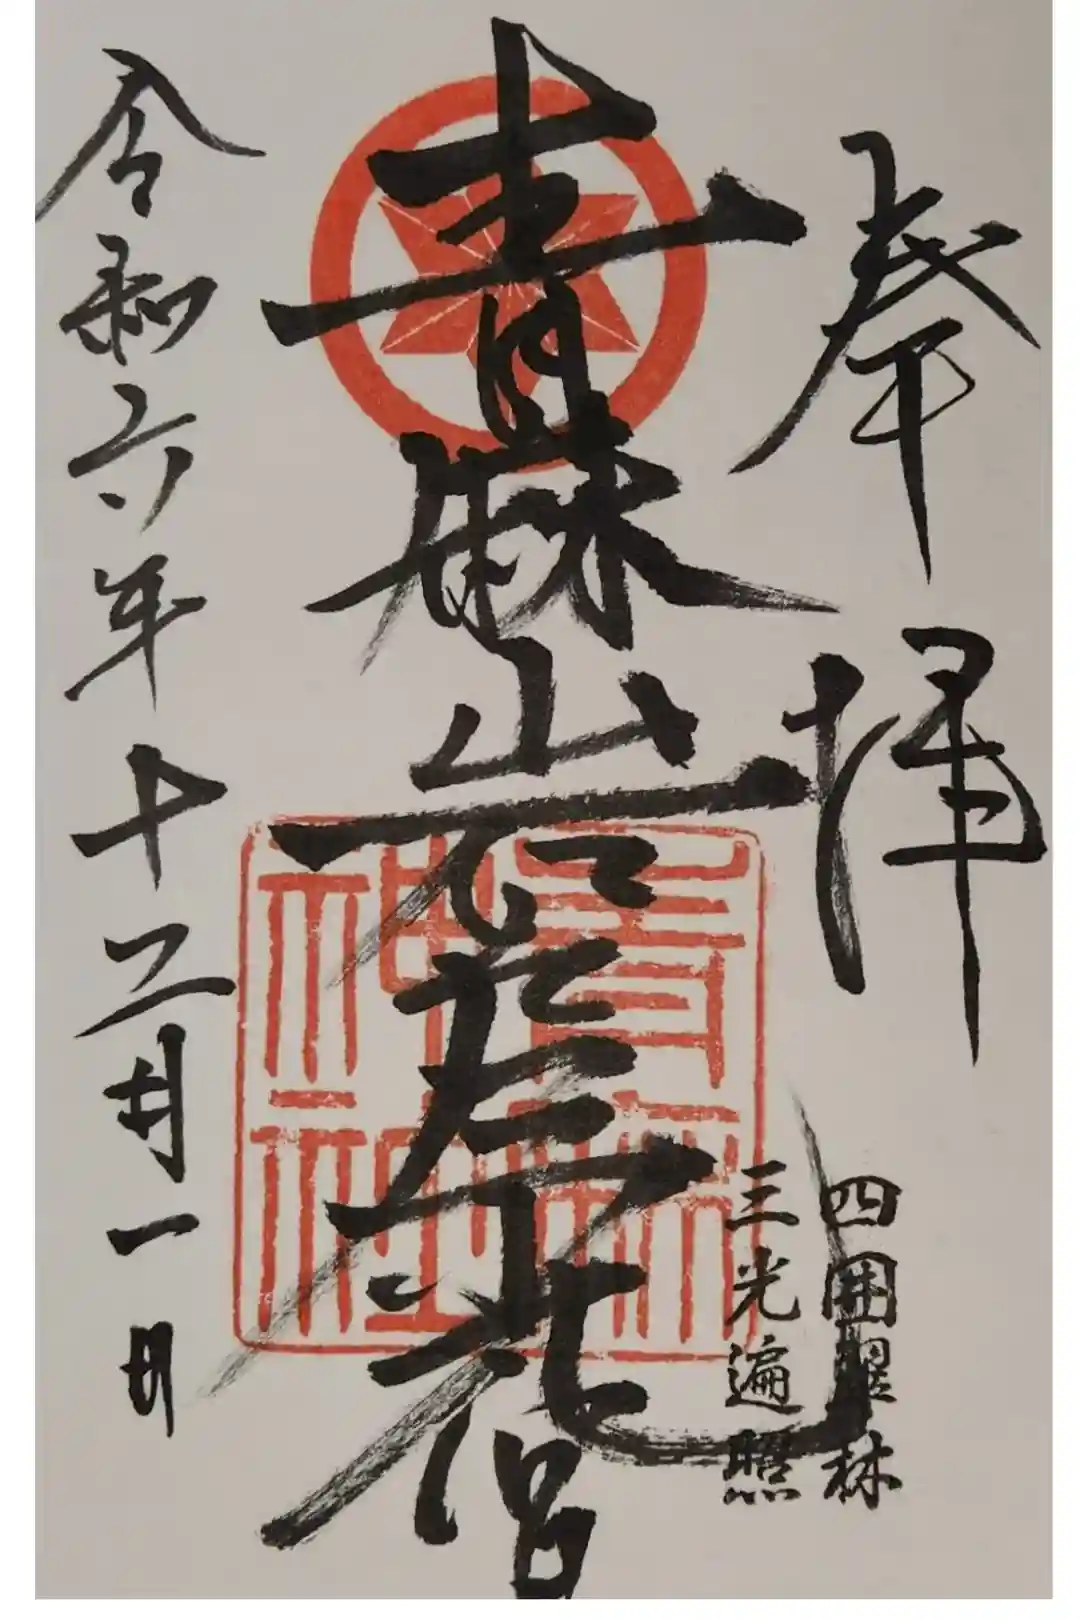 奉拝
四囲
林
三光遍照
青麻山
青麻
神社
令和六年十二月一日